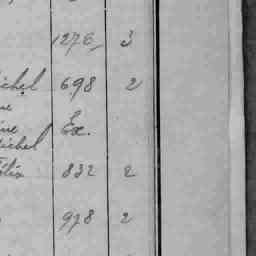 1276 3
ichel 698 2
ne
ine Ex.
ichel
élix 832 2
978 2